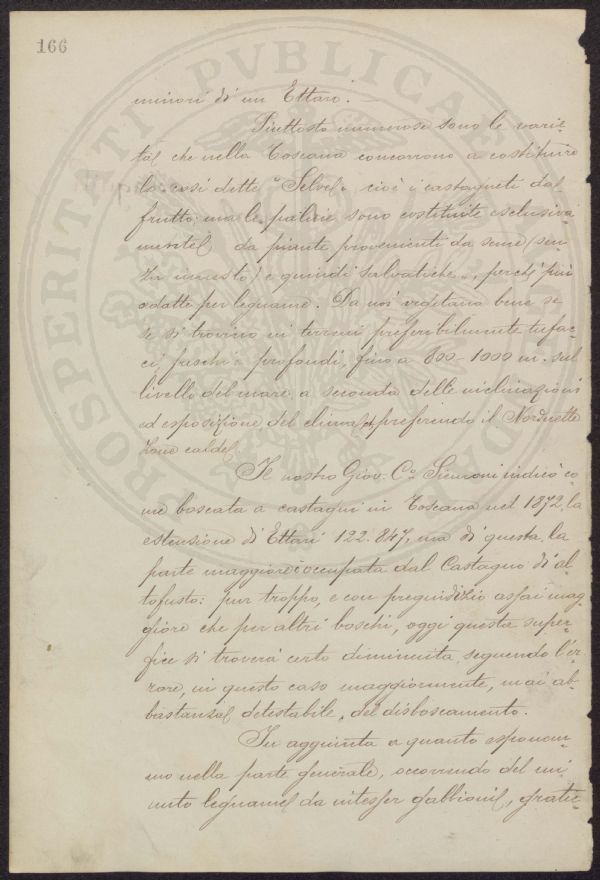 166
minori di un Ettaro. —
Piuttosto numerose sono le varie-
tà che nella Toscana concorrono a costituire
le così dette "Selve", cioè i castagneti dal
frutto; ma le paline sono costituite esclusiva-
mente da piante provenienti da seme (sen-
za innesto) e quindi salvatiche, perché più
adatte per legname. Da noi vegetano bene se
se si trovino in terreni preferibilmente tufa-
cei, freschi e profondi, fino a 800-1000 m. sul
livello del mare a seconda delle inclinazioni
ed esposizione del clima, preferendo il Nord nelle
zone calde.
Il nostro Giov. C.o Simoni indicò co-
me boscata a castagni in Toscana nel 1872, la
estensione di Ettari 122.847, ma di questa, la
parte maggiore è occupata dal Castagno di al-
tofusto: pur troppo, e con pregiudizio assai mag-
giore che per altri boschi, oggi questa super-
fice si troverà certo diminuita, seguendo l'er-
rore, in questo caso maggiormente, mai ab-
bastanza detestabile, del disboscamento.
In aggiunta a quanto esponem-
mo nella parte generale, occorrendo del mi-
nuto legname da intesser gabbioni, gratic-
PROSPERITATI PVBLICAE